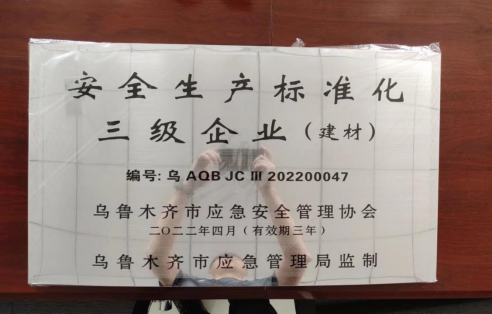 安全生产标准化
三级企业（建材）
编号: 乌 AQB JC Ⅲ 202200047
乌鲁木齐市应急安全管理协会
二〇二二年四月（有效期三年）
乌鲁木齐市应急管理局监制